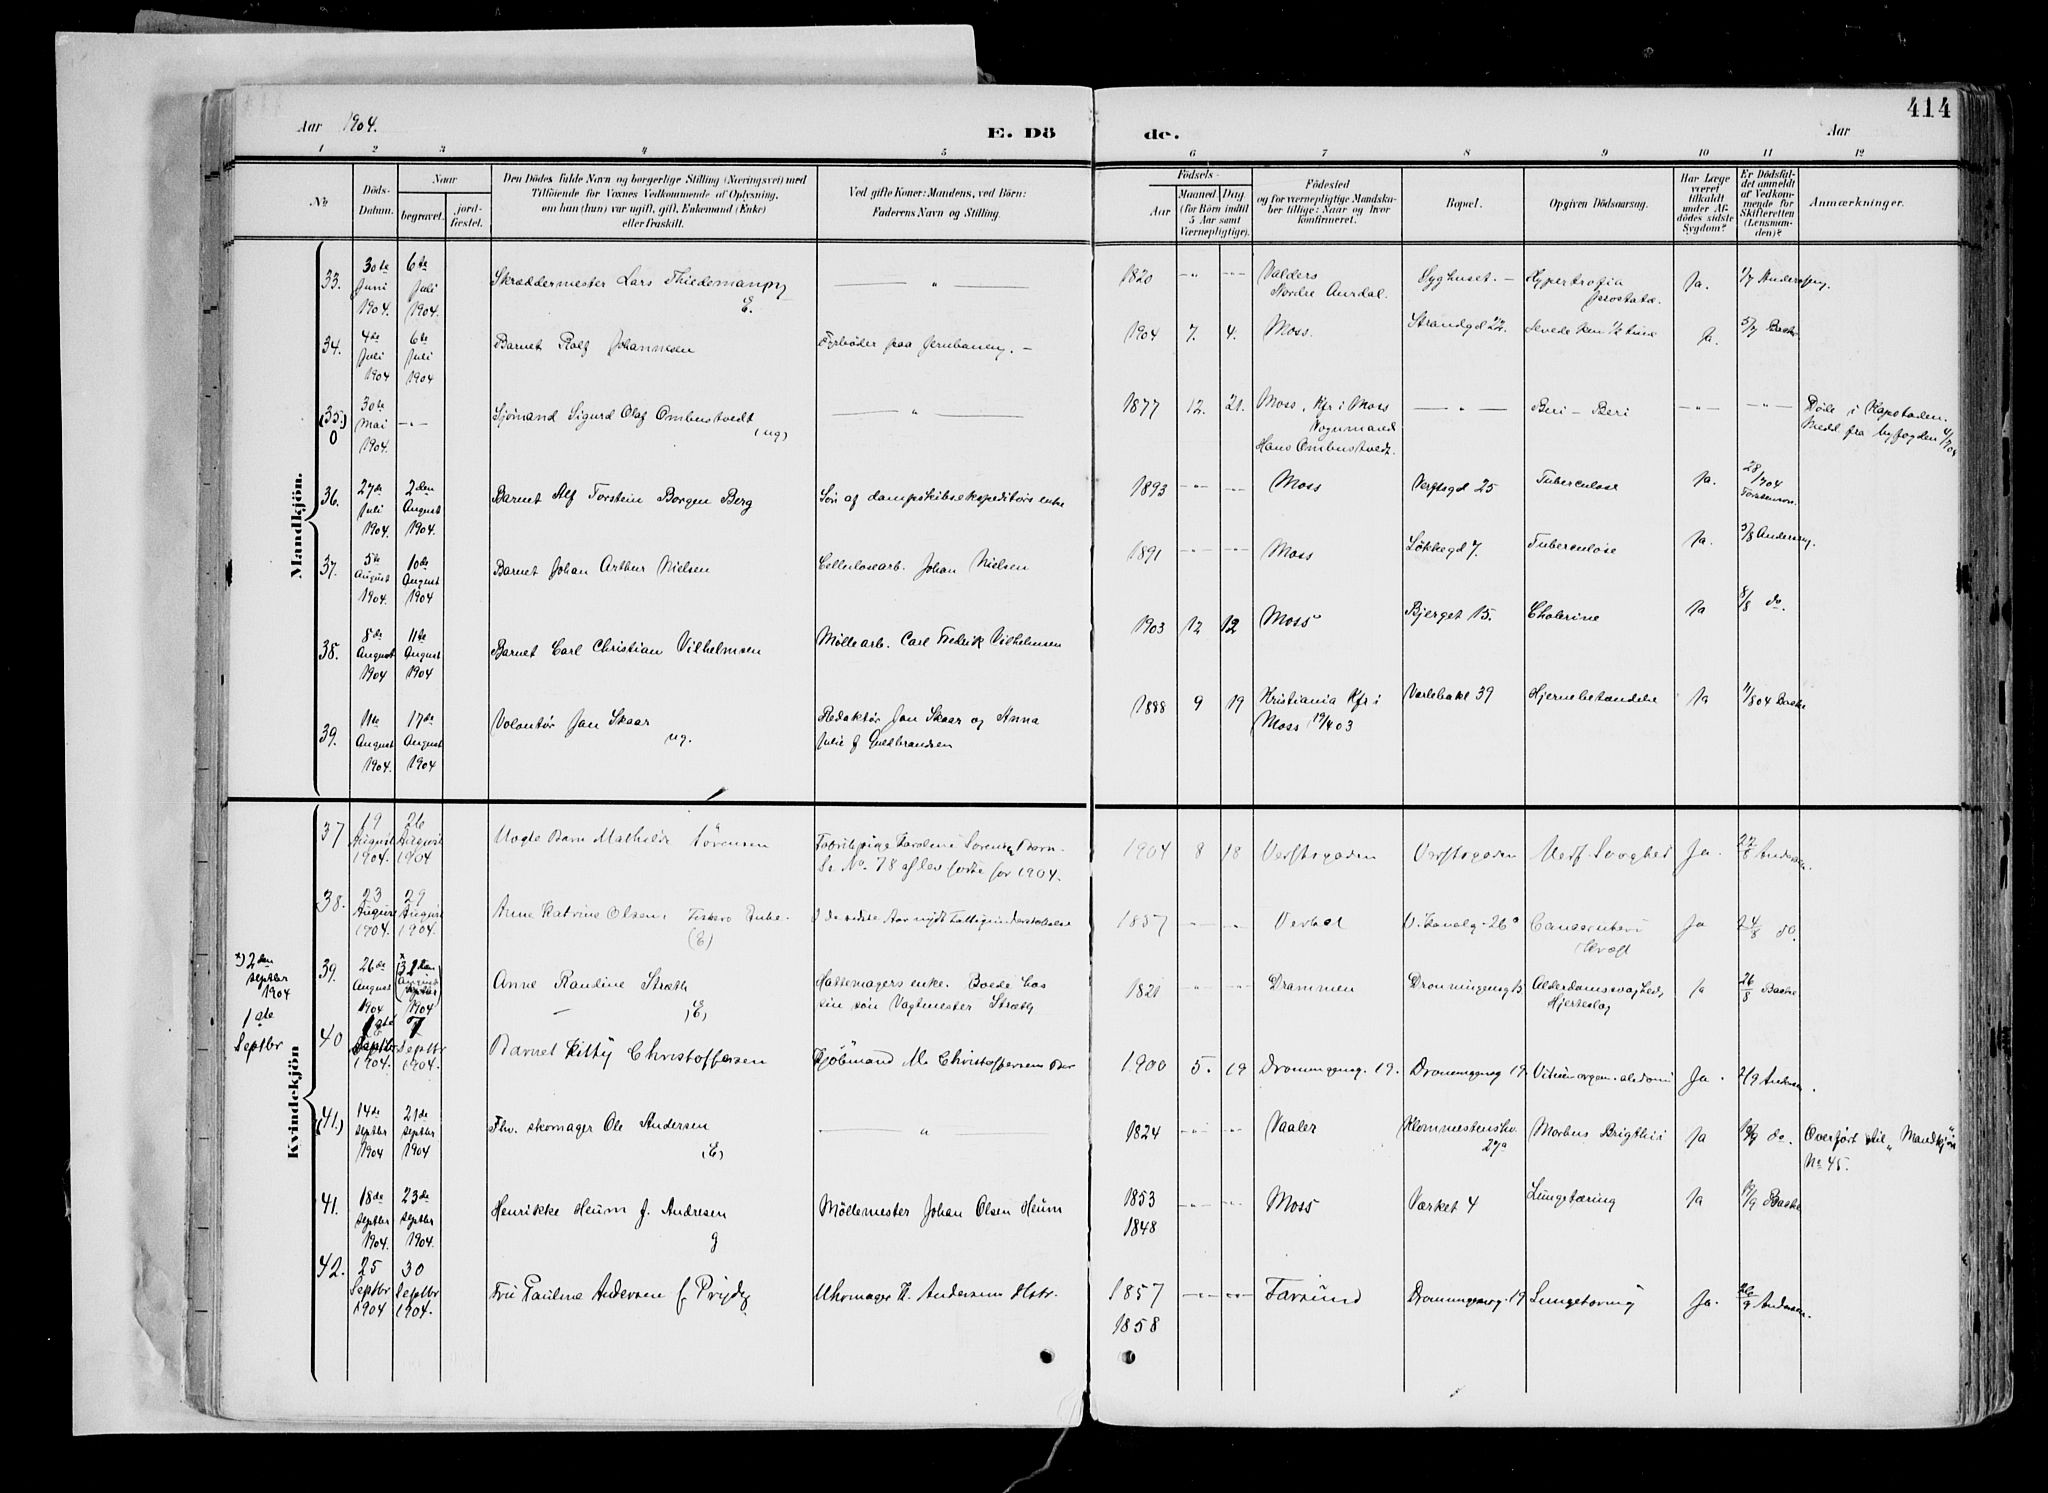 414
Aar 1904.
E. Dö
de.
Aar
1 2 3 4 5
6 7 8 9 10 11 12
No
Döds-
Datum.
Naar
begravet.
jord-
fæstet.
Den Dödes fulde Navn og borgerlige Stilling (Næringsvei) med
Tilföiende for Voxnes Vedkommende af Oplysning,
om han (hun) var ugift, gift, Enkemand (Enke)
eller fraskilt.
Ved gifte Koner: Mandens, ved Börn:
Faderens Navn og Stilling.
Födsels-
Aar
Maaned
Dag
(for Börn indtil
5 Aar samt
Værnepligtige).
Födested
og for værnepligtige Mandskaber
tillige: Naar og hvor
konfirmeret.
Bopæl.
Opgiven Dödsaarsag.
Har Læge
været
tilkaldt
under Afdödes
sidste
Sygdom?
Er Dödsfaldet
anmeldt
af Vedkommende
for
Skifteretten
(Lensmanden)?
Anmærkninger.
Mandkjön.
33. 30te Juni 1904. 6te Juli 1904. Skræddermester Lars Thiedemann E. — " — 1820 — " — Valders Nordre Aurdal. Syghuset. — Hypertrofia prostatæ. Ja. 1/7 Andersen.
34. 4de Juli 1904 6te Juli 1904 Barnet Rolf Johannesen Fyrbøder paa Jernbanen. — 1904 7. 4. Moss. Strandgd 22. Levede kun 1/2 time Ja. 5/7 Bache
(35.) 0 30te Mai 1904. — " — Sjømand Sigurd Olaf Ombustvedt (ug) — " — 1877 12. 21. Moss, Kfr i Moss Vognmand Hans Ombustvedt. — " — Beri-Beri — " — — " — Døde i Kapstaden. Medd fra byfogden 4/7 04
36. 27de Juli 1904. 2den August 1904. Barnet Alf Torstein Borgen Berg Søn af dampskibsekspeditørs enke 1893 — " — Moss Verftsgd 25 Tuberculose Ja. 28/7 04
37. 5te August 1904. 10de August 1904 Barnet Johan Arthur Nielsen Cellulosearb. Johan Nielsen 1891 — " — Moss Løkkegd 7. Tuberculose Ja. 5/8 Andersen.
38. 8de August 1904 11te August 1904 Barnet Carl Christian Vilhelmsen Møllearb. Carl Fredrik Vilhelmsen 1903 12 12 Moss Bjerget 15. Cholerine Ja 8/8 do.
39. 11te August 1904. 17de August 1904 Volontør Jan Skaar ug. Redaktør Jan Skaar og Anna Julie f Guldbrandsen 1888 9 19 Kristiania Kfr i Moss 19/4 03 Varlebakk 39 Hjernebetændelse Ja 11/8 04 Bache
Kvindekjön
37 19 August 1904. 26 August 1904 Uægte Barn Mathilde Sørensen Fabrikpige Karoline Sørensen Barn. Se No. 78 af lev fødte for 1904. 1904 8 18 Verftsgaden Verftsgaden Medf. Svaghed Ja. 22/8 Andersen.
38. 23 August 1904. 29 August 1904. Anne Katrine Olsen, Fiskers Enke. (E) I de sidste Aar nydt Fattigunderstøttelse 1857 — " — 26a Ja 24/8 do.
x) 2den septbr 1904
39. 26de August 1904 (31 August) 1904 Anne Pauline Stræth (E) Hattemagers enke. Boede hos sin søn Vagtmester Stræth 1821 — " — Drammen Dronningensg 13 Alderdomssvaghed, Hjerteslag Ja 26/8 Bache
1ste Septbr
40 1ste Septbr 1904. 7 Septbr 1904. Barnet Kitty Christoffersen Kjøbmand M. Christoffersens Dtr 1900 5. 19 Dronningensg. 19. Dronningensg 19 Ja. 2/9 Andersen.
(41.) 14de septbr 1904 21de septbr 1904 Fhv. skomager Ole Andersen (E) — " — 1824 — " — Vaaler 27a Morbus Brigthii Ja do. Overført til "Mandkjøn" No 45.
41. 18de septbr 1904. 23de septbr 1904. Henrikke Heum f. Andresen g Møllemester Johan Olsen Heum 1853 1848 — " — Moss Værket 4 Lungetæring Ja 19/9 Bache
42. 25 Septbr 1904 30 Septbr 1904. Fru Pauline Andersen f Prydz Uhrmager H. Andersens Hstr. 1857 1858 — " — Farsund Dronningensg. 19 Lungetæring Ja. 26/9 Andersen.